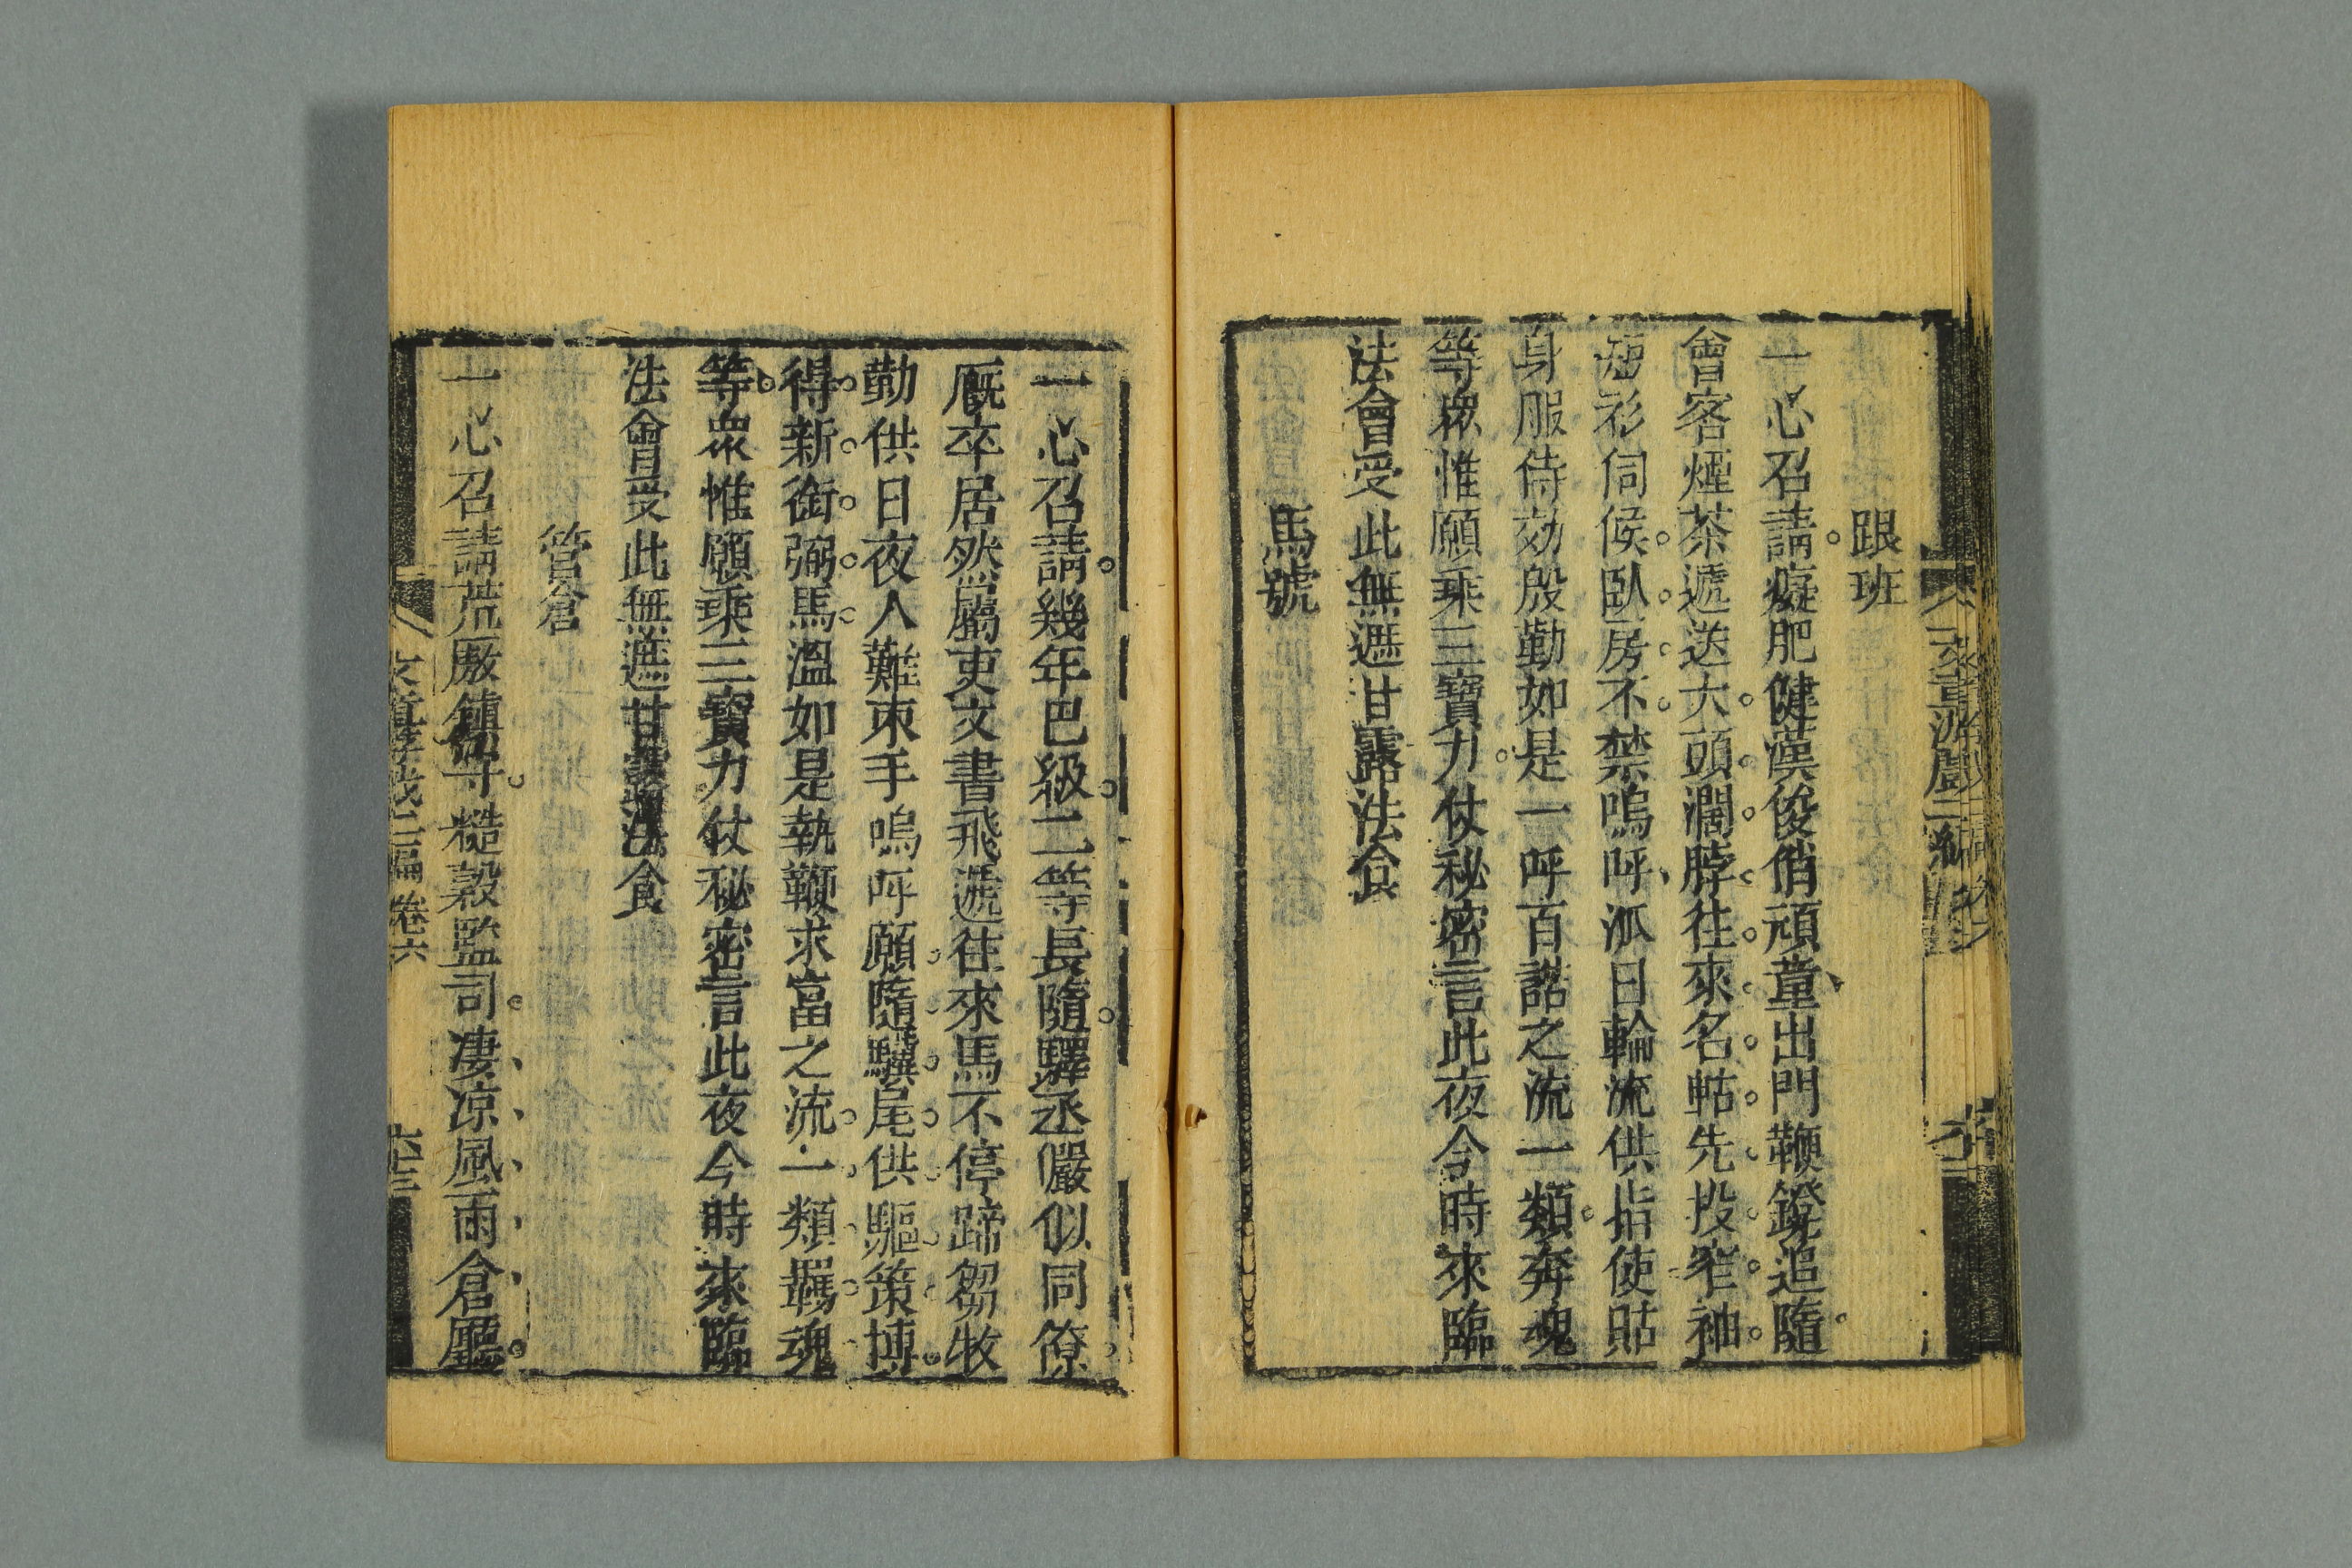 跟班
一心召請癡肥健漢俊俏頑童出門鞭鐙追隨
會客煙茶遞送大頭濶脖往來名帖先投窄袖
短衫伺候臥房不禁嗚呼派日輪流供指使貼
身服侍効殷勤如是一呼百諾之流一類奔魂
等衆惟願乘三寶力仗秘密言此夜今時來臨
法會受此無遮甘露法食
馬號
一心召請幾年巴級二等長隨驛丞儼似同僚
厩卒居然當屬吏文書飛遞往來馬不停蹄芻牧
勤供日夜人難束手嗚呼願隨驥尾供驅策博
得新銜弼馬溫如是執鞭求富之流一類羈魂
等衆惟願乘三寶力仗秘密言此夜今時來臨
法會受此無遮甘露法食
管倉
一心召請荒厫鎮守糙穀監司凄凉風雨倉廳
二編 卷六